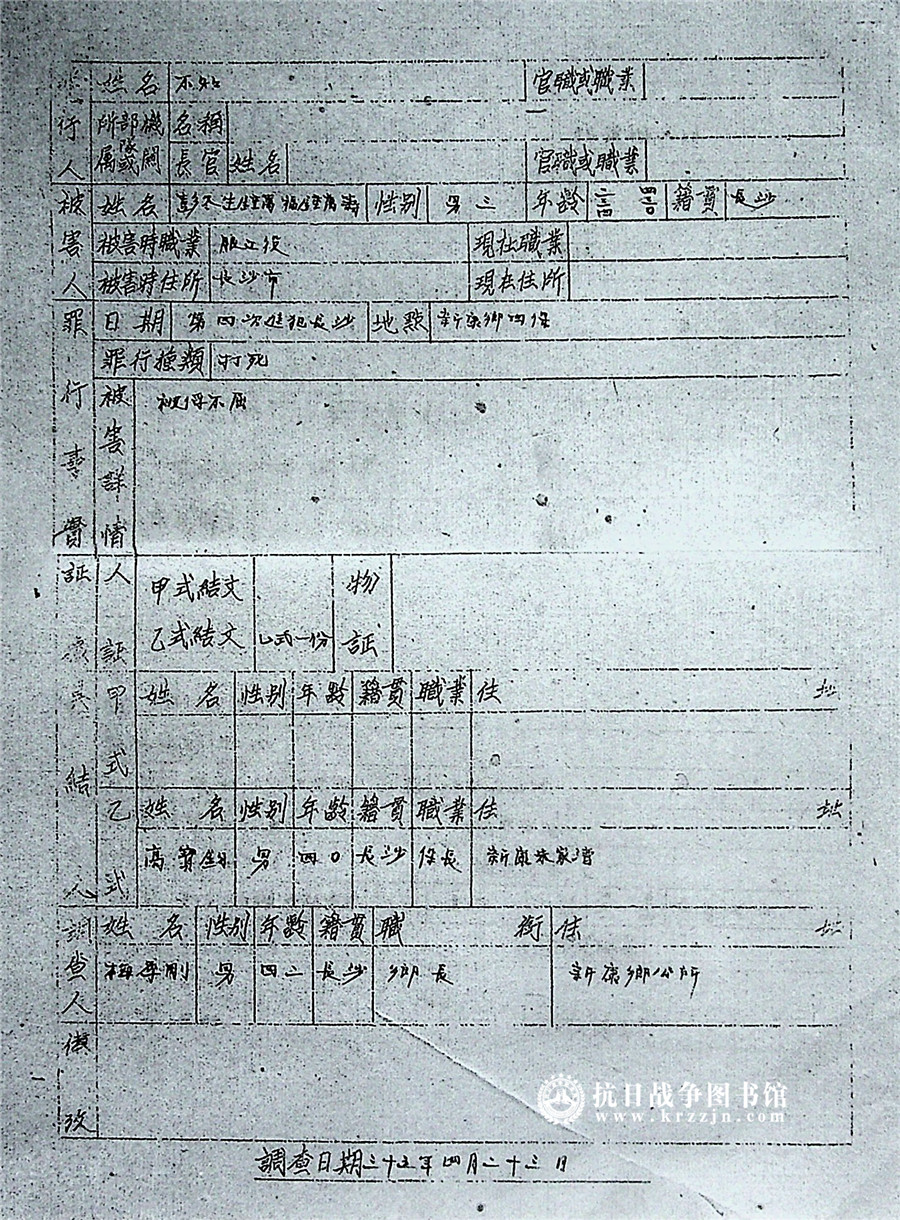 罪行人 姓名 不知 官職或職業
所屬部隊或機関 名稱
長官 姓名 官職或職業
被害人 姓名 性别 男三 年齡 籍貫 長沙
被害時職業 服立役 現社職業
被害時住所 長沙市 現在住所
罪行事實 日期 第四次進犯長沙 地點 新康鄉四保
罪行種類 打死
被害詳情 被俘不屈
証據與結人 人証 甲式結文 物証
乙式結文 乙式一份
甲式 姓名 性别 年齡 籍貫 職業 住址
乙式 姓名 性别 年齡 籍貫 職業 住址
高寶 男 四〇 長沙 保長 新康朱家
調查人 姓名 性别 年齡 籍貫 職銜 住址
男 四二 長沙 鄉長 新康鄉公所
備攷
調查日期三十五年四月二十三日
抗日战争图书馆
www.krzzjn.com